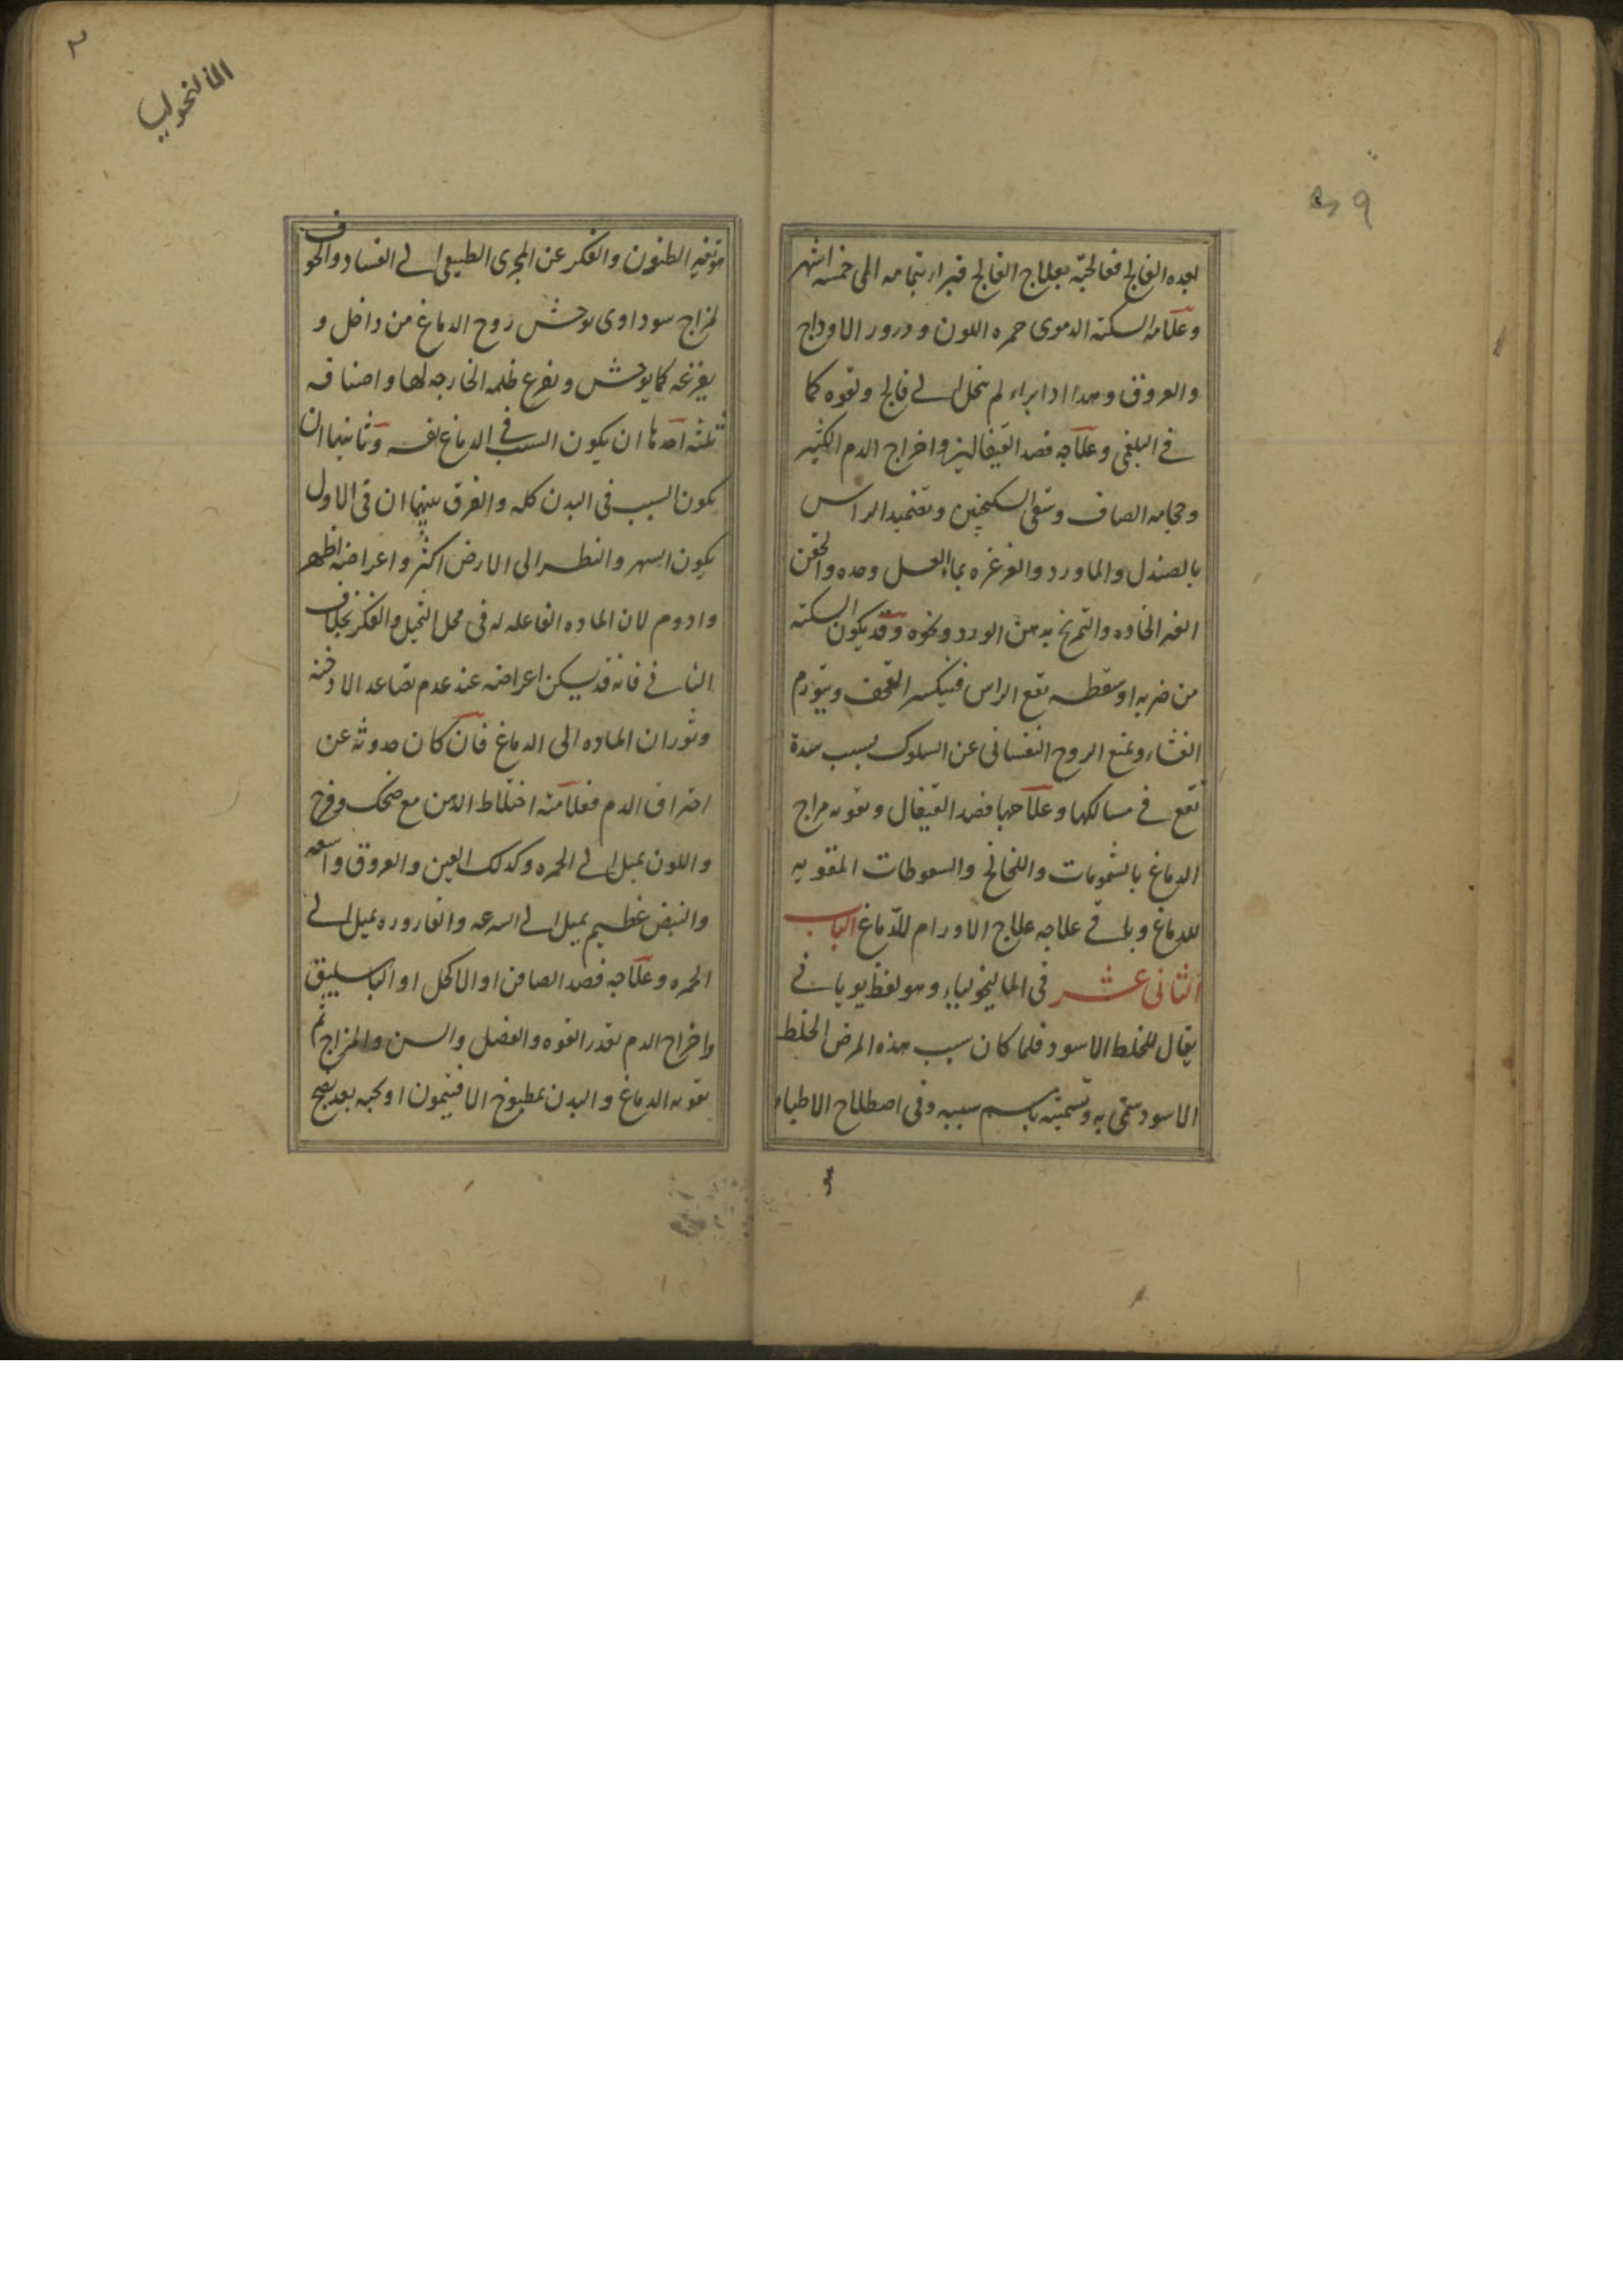 ٩
بعده الفالج فعالجته بعلاج الفالج فبرا بتمامه الى خمسه اشهر
وعلامه السكته الدموى حمره اللون ودرور الاوداج
والعروق وهذا اذا براء لم ينحل الى فالج ولقوه كما
فى البلغمى وعلاجه فصد القيفالين واخراج الدم الكثير
وحجامه الصافن وسقى السكنجبين وتضميد الراس
بالصندل والماورد والغرغره بماء العسل وحده والحقن
الغير الحاده والتمريخ بدهن الورد ونحوه وقد يكون السكته
من ضربه او سقطه تقع الراس فينكسر القحف ويتورم
الغشاء ويمنع الروح النفسانى عن السلوك بسبب سدة
تقع فى مسالكها وعلاجها فصد القيفال وتقويه مزاج
الدماغ بالشمومات واللخالخ والسعوطات المقويه
للدماغ وباقى علاجه علاج الاورام للدماغ الباب
الثانى عشر فى الماليخولياء وهو لفظ يونانى
يقال للخلط الاسود فلما كان سبب هذه المرض الخلط
الاسود سمى به وتسميته باسم سببه وفى اصطلاح الاطباء
المالنخوليا
هو تغير الظنون والفكر عن المجرى الطبيعى الى الفساد والخوف
لمزاج سوداوى يوحش روح الدماغ من داخل و
يفزعه كما يوحش ويفزع ظلمه الخارجه لها واصنافه
ثلثه احدها ان يكون السبب فى الدماغ نفسه وثانيها ان
يكون السبب فى البدن كله والفرق بينهما ان فى الاول
يكون السهر والنظر الى الارض اكثر واعراضه اظهر
وادوم لان الماده الفاعله له فى محل التخيل والفكر بخلاف
الثانى فانه قد يسكن اعراضه عند عدم تصاعد الادخنه
وثوران الماده الى الدماغ فان كان حدوثه عن
احتراق الدم فعلامته اختلاط الذهن مع ضحك وفرح
واللون يميل الى الحمره وكذلك العين والعروق واسعه
والنبض عظيم يميل الى السرعه والقاروره يميل الى
الحمره وعلاجه فصد الصافن او الاكحل او الباسليق
واخراج الدم بقدر القوه والفصل والسن والمزاج ثم
تقويه الدماغ والبدن بمطبوخ الافتيمون او بحبه بعد نضج